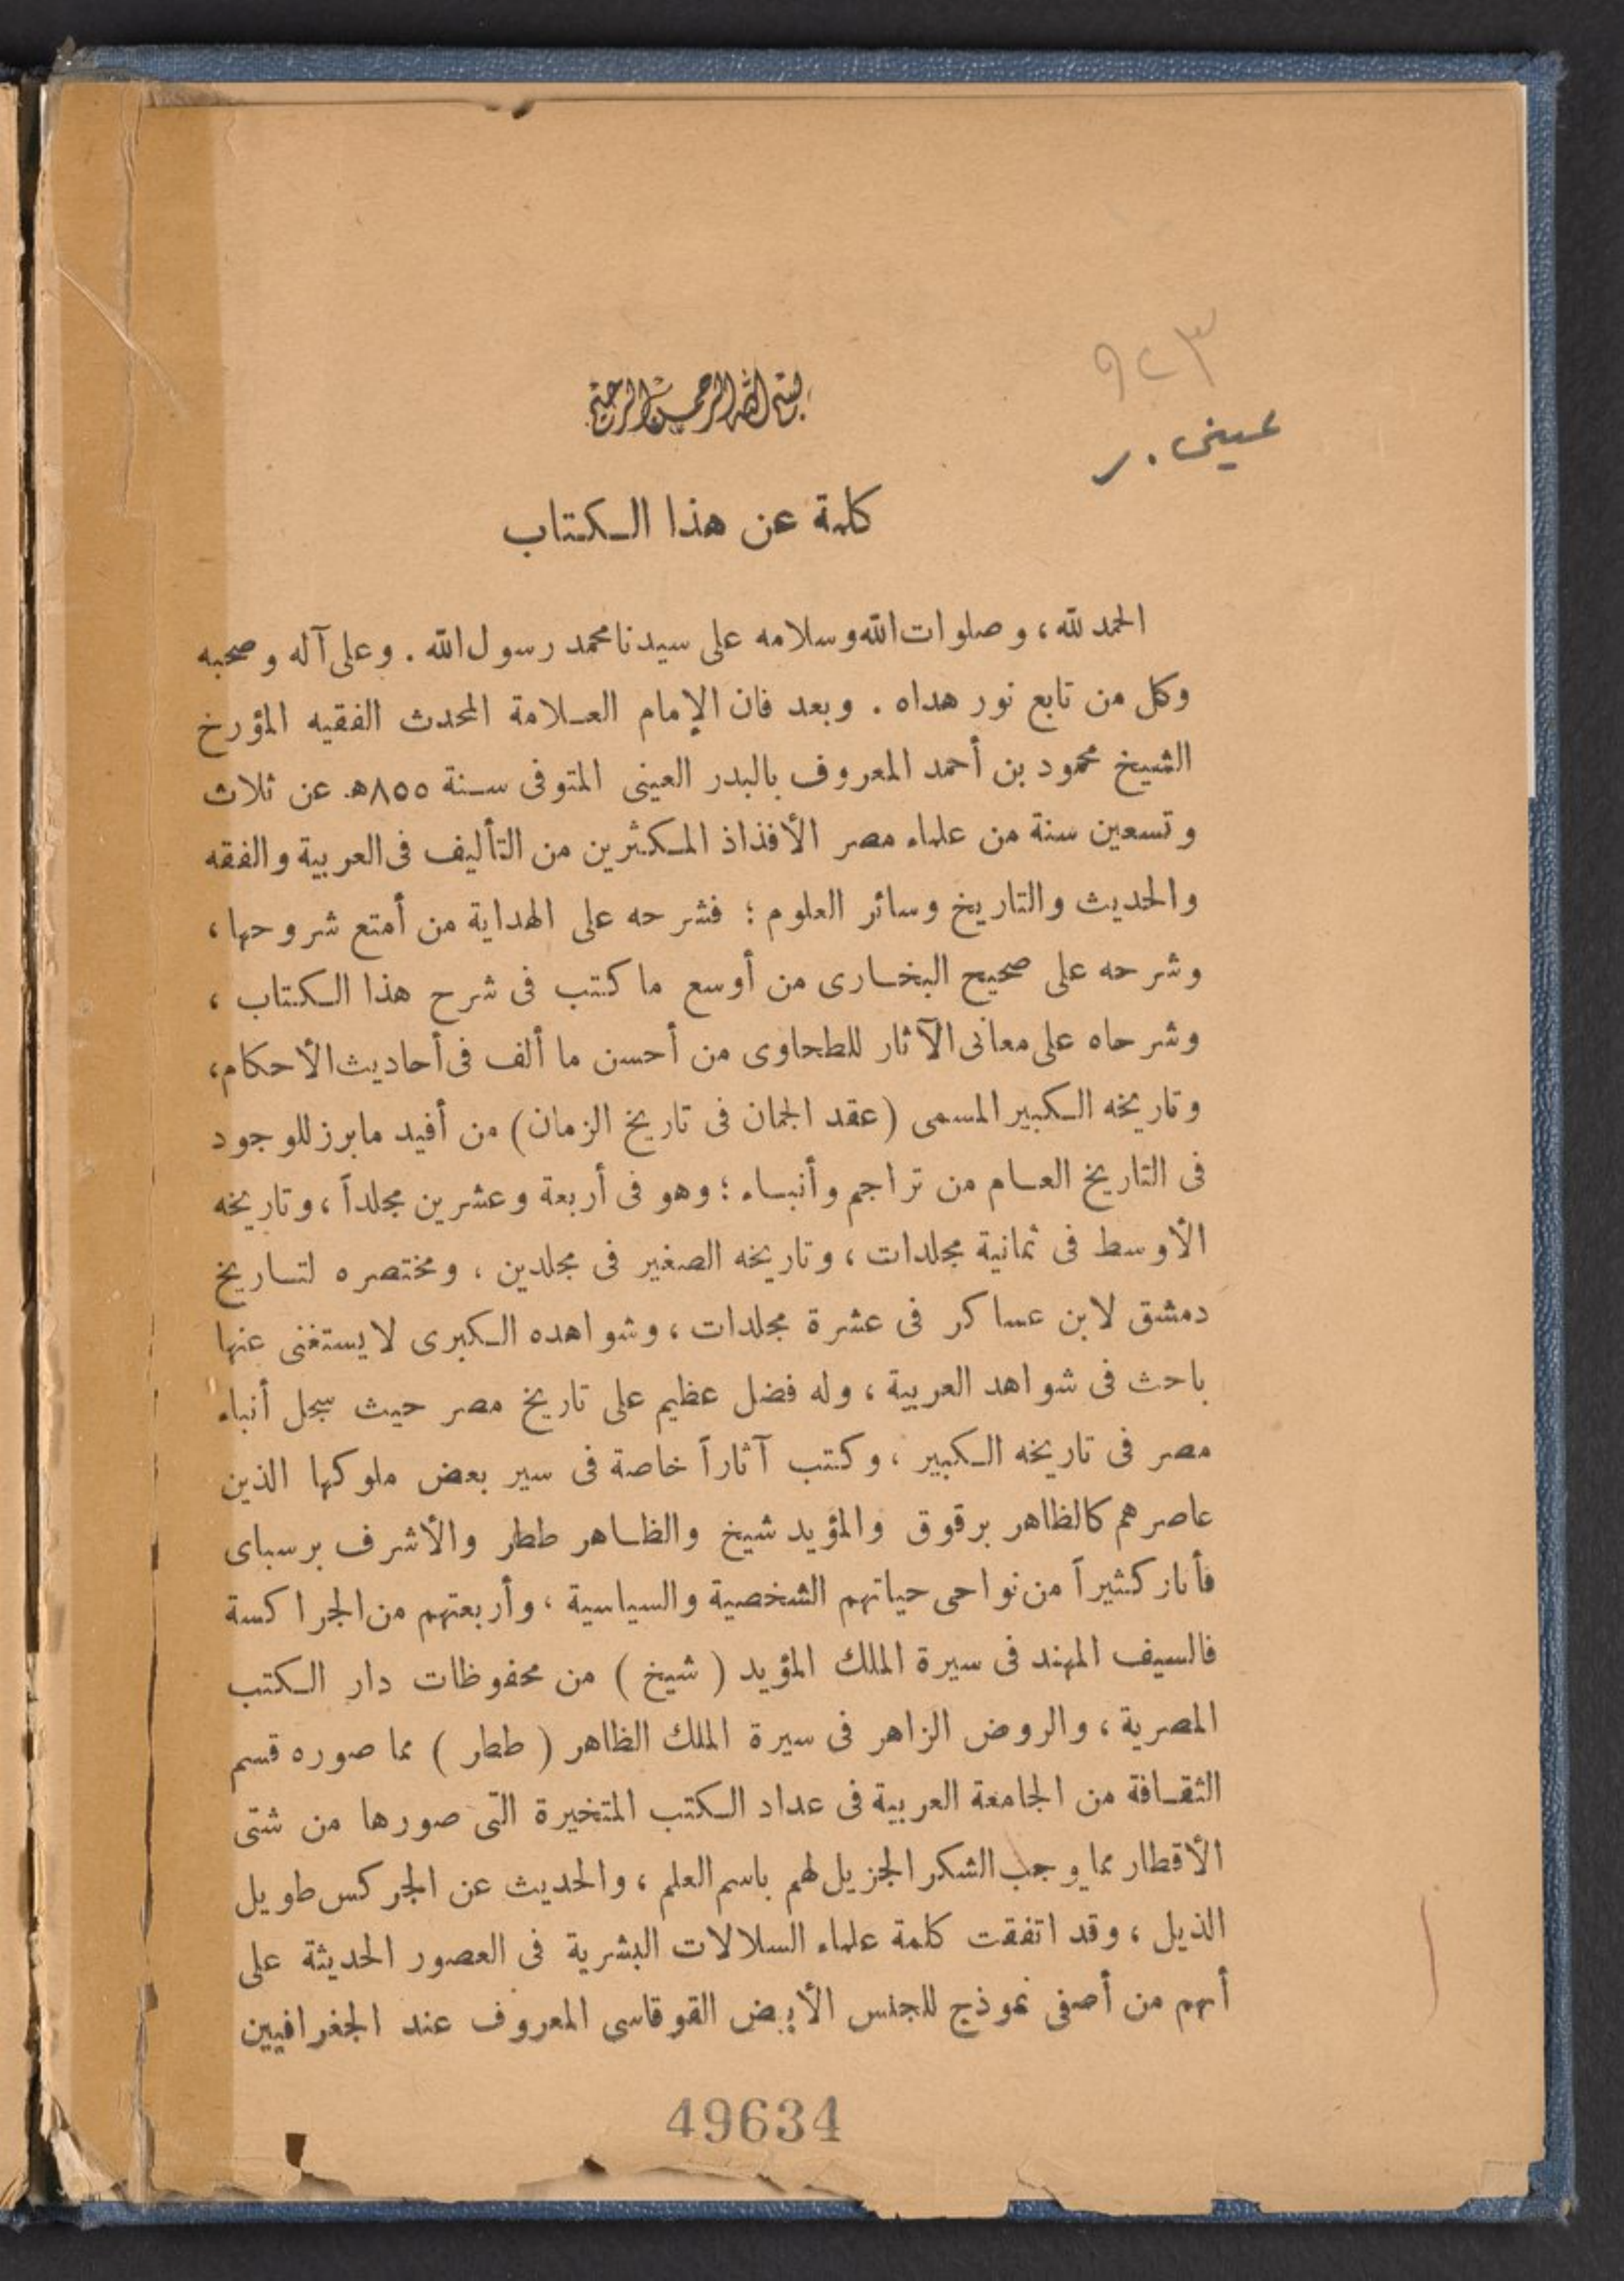 ٩٢٣
عينى . ر
بسم الله الرحمن الرحيم
كلمة عن هذا الكتاب
الحمد لله ، وصلوات الله وسلامه على سيدنا محمد رسول الله . وعلى آله وصحبه
وكل من تابع نور هداه . وبعد فان الإمام العلامة المحدث الفقيه المؤرخ
الشيخ محمود بن أحمد المعروف بالبدر العينى المتوفى سنة ٨٥٥هـ عن ثلاث
وتسعين سنة من علماء مصر الأفذاذ المكثرين من التأليف فى العربية والفقه
والحديث والتاريخ وسائر العلوم ؛ فشرحه على الهداية من أمتع شروحها ،
وشرحه على صحيح البخارى من أوسع ما كتب فى شرح هذا الكتاب ،
وشرحاه على معانى الآثار للطحاوى من أحسن ما ألف فى أحاديث الأحكام ،
وتاريخه الكبير المسمى (عقد الجمان فى تاريخ الزمان) من أفيد ما برز للوجود
فى التاريخ العام من تراجم وأنباء ؛ وهو فى أربعة وعشرين مجلداً ، وتاريخه
الأوسط فى ثمانية مجلدات ، وتاريخه الصغير فى مجلدين ، ومختصره لتاريخ
دمشق لابن عساكر فى عشرة مجلدات ، وشواهده الكبرى لا يستغنى عنها
باحث فى شواهد العربية ، وله فضل عظيم على تاريخ مصر حيث سجل أنباء
مصر فى تاريخه الكبير ، وكتب آثاراً خاصة فى سير بعض ملوكها الذين
عاصرهم كالظاهر برقوق والمؤيد شيخ والظاهر ططر والأشرف برسباى
فأنار كثيراً من نواحى حياتهم الشخصية والسياسية ، وأربعتهم من الجراكسة
فالسيف المهند فى سيرة الملك المؤيد ( شيخ ) من محفوظات دار الكتب
المصرية ، والروض الزاهر فى سيرة الملك الظاهر ( ططر ) مما صوره قسم
الثقافة من الجامعة العربية فى عداد الكتب المتخيرة التى صورها من شتى
الأقطار مما يوجب الشكر الجزيل لهم باسم العلم ، والحديث عن الجركس طويل
الذيل ، وقد اتفقت كلمة علماء السلالات البشرية فى العصور الحديثة على
أنهم من أصفى نموذج للجنس الأبيض القوقاسى المعروف عند الجغرافيين
49634